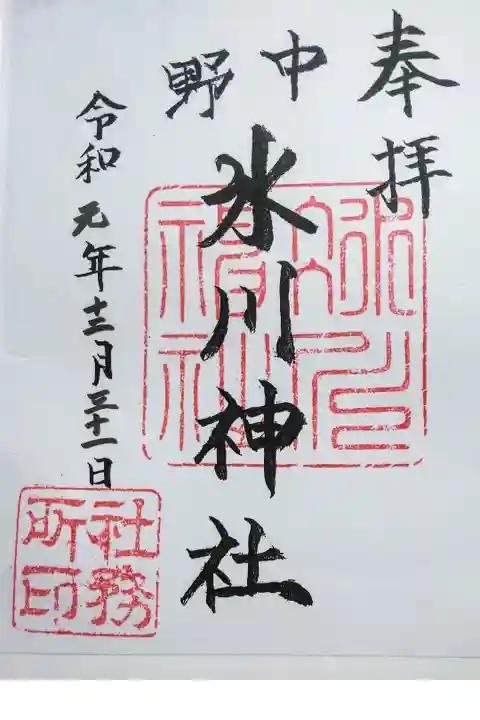 奉拝
中野
氷川神社
令和元年十二月三十一日
社務
所印